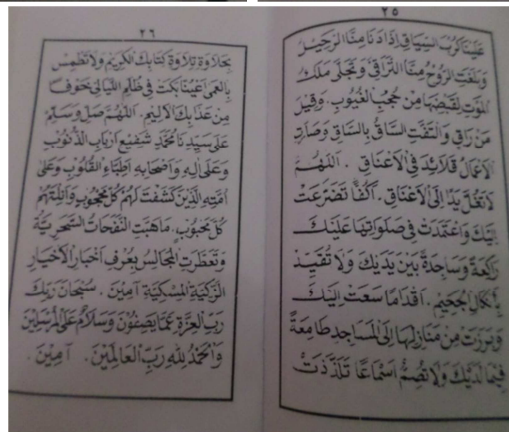 ٢٥
عَلَيْنَا كَرْبُ السِّيَاقِ إِذَا دَنَا مِنَّا الرَّحِيْلُ
وَبَلَغَتِ الرُّوْحُ مِنَّا التَّرَاقِيَ وَتَجَلَّى مَلَكُ
الْمَوْتِ لِقَبْضِهَا مِنْ حُجُبِ الْغُيُوْبِ. وَقِيْلَ
مَنْ رَاقٍ وَالْتَفَّتِ السَّاقُ بِالسَّاقِ وَصَارَتِ
الْأَعْمَالُ قَلَائِدَ فِي الْأَعْنَاقِ. اَللّٰهُمَّ
لَا تَغُلَّ يَدًا إِلَى الْأَعْنَاقِ. أَكُفًّا تَضَرَّعَتْ
إِلَيْكَ وَاعْتَمَدَتْ فِي صَلَوَاتِهَا عَلَيْكَ
رَاكِعَةً وَسَاجِدَةً بَيْنَ يَدَيْكَ وَلَا تُقَيِّدْ
بِأَنْكَالِ الْجَحِيْمِ. أَقْدَامًا سَعَتْ إِلَيْكَ
وَبَرَزَتْ مِنْ مَنَازِلِهَا إِلَى الْمَسَاجِدِ طَامِعَةً
فِيْمَا لَدَيْكَ وَلَا تُصِمَّ أَسْمَاعًا تَلَذَّذَتْ
٢٦
بِحَلَاوَةِ تِلَاوَةِ كِتَابِكَ الْكَرِيْمِ وَلَا تَطْمِسْ
بِالْعَمَى أَعْيُنًا بَكَتْ فِي ظُلَمِ اللَّيَالِيْ خَوْفًا
مِنْ عَذَابِكَ الْأَلِيْمِ. اَللّٰهُمَّ صَلِّ وَسَلِّمْ
عَلَى سَيِّدِنَا مُحَمَّدٍ شَفِيْعِ أَرْبَابِ الذُّنُوْبِ
وَعَلَى آلِهِ وَأَصْحَابِهِ أَطِبَّاءِ الْقُلُوْبِ وَعَلَى
أُمَّتِهِ الَّذِيْنَ كَشَفْتَ لَهُمْ كُلَّ مَحْجُوْبٍ وَأَنَلْتَهُمْ
كُلَّ مَحْبُوْبٍ. مَا هَبَّتِ النَّفَحَاتُ السَّحَرِيَّةُ
وَتَعَطَّرَتِ الْمَجَالِسُ بِعُرْفِ أَخْبَارِ الْأَخْيَارِ
الزَّكِيَّةِ الْمِسْكِيَّةِ آمِيْنَ. سُبْحَانَ رَبِّكَ
رَبِّ الْعِزَّةِ عَمَّا يَصِفُوْنَ وَسَلَامٌ عَلَى الْمُرْسَلِيْنَ
وَالْحَمْدُ لِلّٰهِ رَبِّ الْعَالَمِيْنَ. آمِيْنَ.